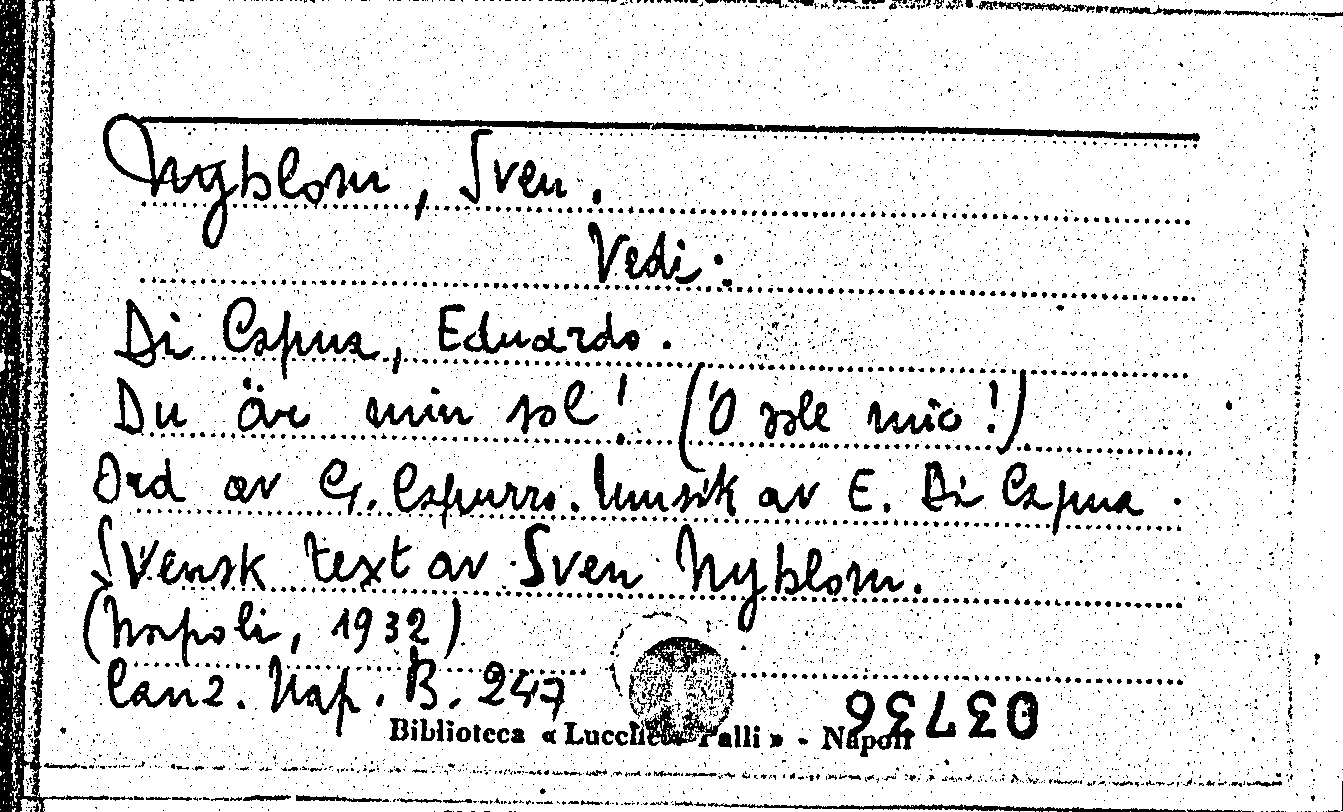 Nyblom, Sven.
Vedi:
Di Capua, Eduardo.
Du är min sol! ('O sole mio!)
Ord av G. Capurro. Musik av E. Di Capua.
Svensk text av Sven Nyblom.
(Napoli, 1932)
Canz. Nap. B. 247
03736
Biblioteca « Lucchesi Palli » - Napoli